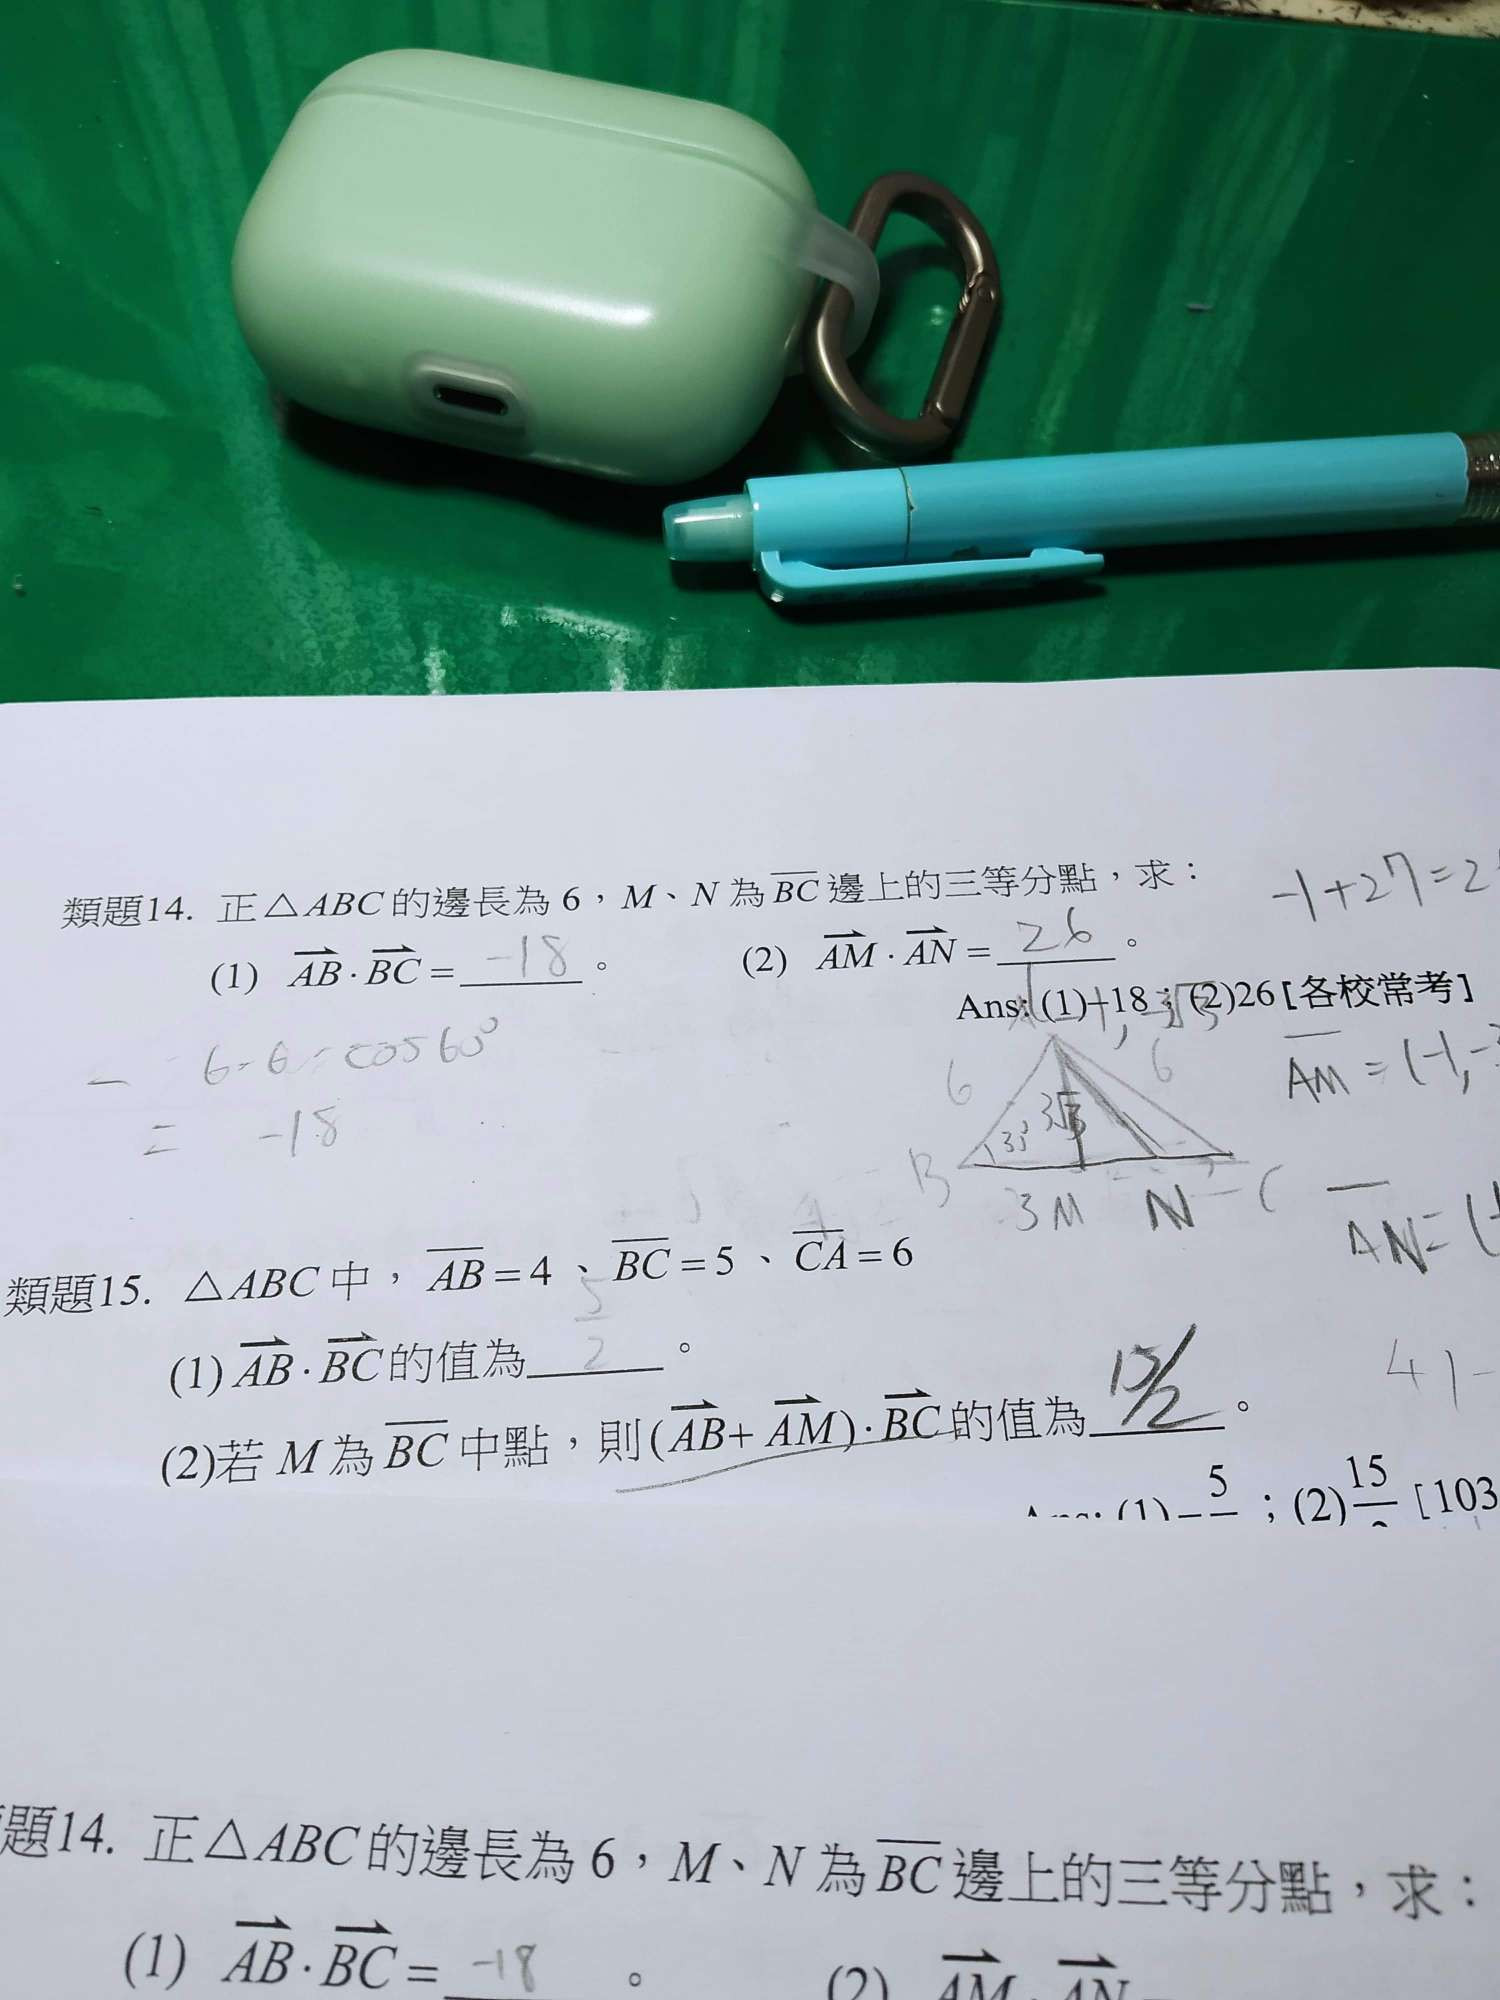 -1+27=2
類題14. 正△ABC的邊長為6，M、N為BC邊上的三等分點，求：
(1) AB·BC=-18。 (2) AM·AN=26。
Ans: (1)-18；(2)26[各校常考]
6 6 cos60°
= -18
6 6
3√3
AM = (-1,-3
B 3 M N C
AN = (
類題15. △ABC中，AB=4、BC=5、CA=6
(1)AB·BC的值為 5/2 。
(2)若M為BC中點，則(AB+AM)·BC的值為 15/2 。
41-
Ans: (1)-5；(2)15 [103
題14. 正△ABC的邊長為6，M、N為BC邊上的三等分點，求：
(1) AB·BC=-18。 (2) AM·AN